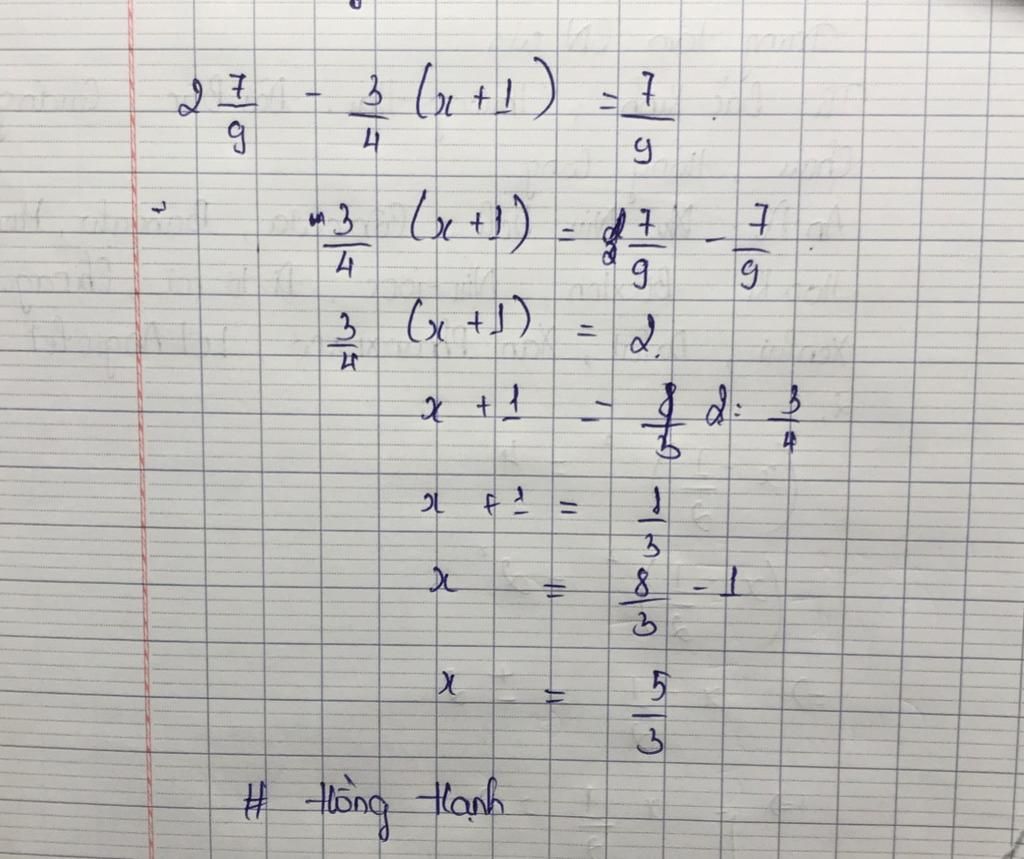 2 7/9 - 3/4 (x + 1) = 7/9
3/4 (x + 1) = 2 7/9 - 7/9
3/4 (x + 1) = 2.
x + 1 = 2 : 3/4
x + 1 = 1/3
x = 8/3 - 1
x = 5/3
# Hồng Hạnh